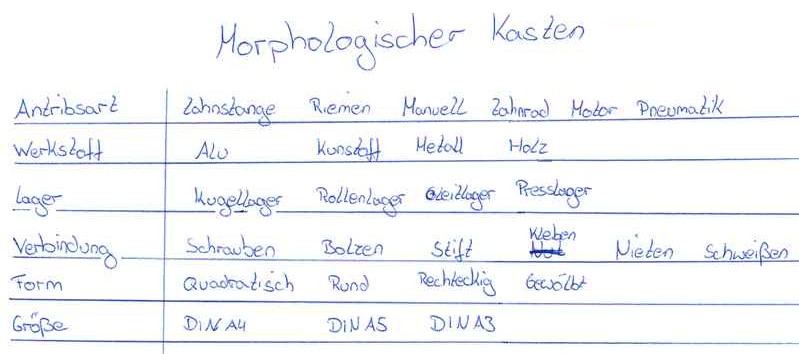 Morphologischer Kasten
Antribsart Zahnstange Riemen Manuell Zahnrad Motor Pneumatik
Werkstoff Alu Kunstoff Metall Holz
Lager Kugellager Rollenlager Gleitlager Presslager
Verbindung Schrauben Bolzen Stift Weben Nieten Schweißen
Form Quadratisch Rund Rechteckig Gewölbt
Größe DIN A4 DIN A5 DIN A3